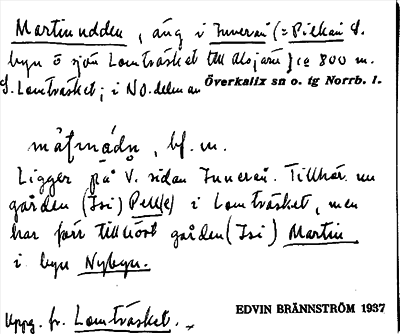 Martinudden, äng i Inneran (= Pilkan l.
byn ö sjön Lomträsket till Alsjärv) ca 800 m.
S. Lomträsket; i NO. delen av Överkalix sn o. tg Norrb. l.
bf. m.
Ligger på V. sidan Inneran. Tillhör nu
gården (Isi) Pelle i Lomträsket, men
har förr tillhört gården (Isi) Martin
i byn Nybyn.
Uppg. fr. Lomträsket.
EDVIN BRÄNNSTRÖM 1937